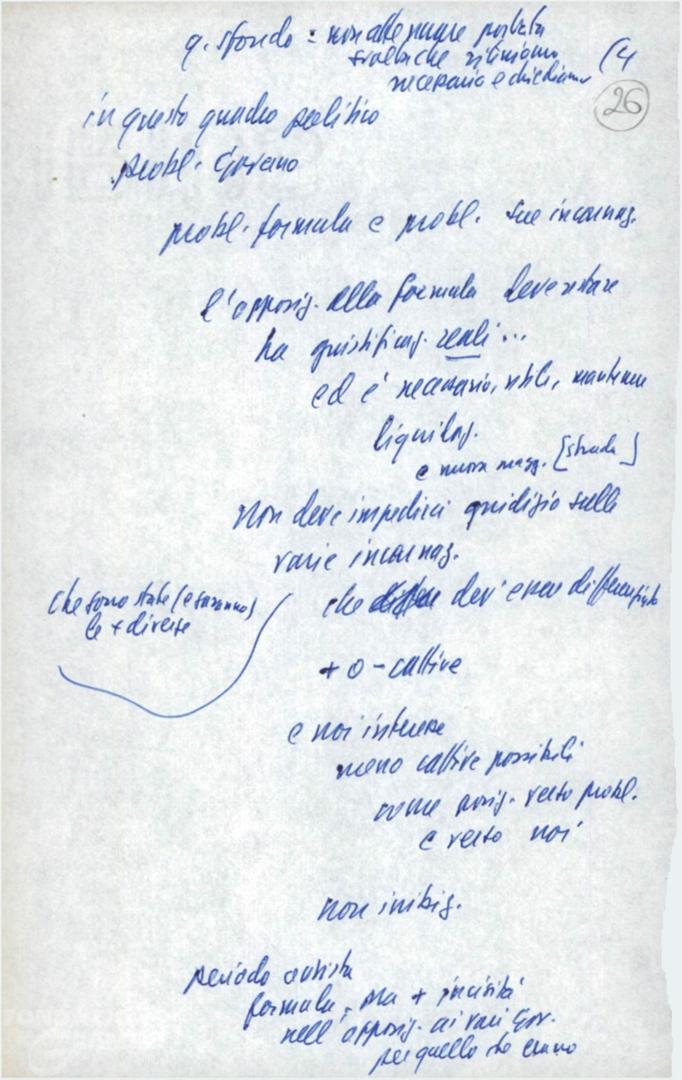 q. sfondo = non attenuare portata
svolta che riteniamo
necessaria e chiediamo
(4
26
in questo quadro politico
probl. Governo
probl. formula e probl. sue incarnaz.
l'opposiz. alla formula deve restare
ha giustificaz. reali...
ed è necessario, utile, mantenere
liquidaz.
e nuova magg. [strada]
Non deve impedirci giudizio sulle
varie incarnaz.
che sono state (e saranno)
le + diverse
che dev'essere differenziato
+ o - cattive
e noi interesse
meno cattive possibili
come posiz. verso probl.
e verso noi
non inibiz.
periodo
formula, ma + incisità
nell'opposiz. ai vari Gov.
per quello che erano